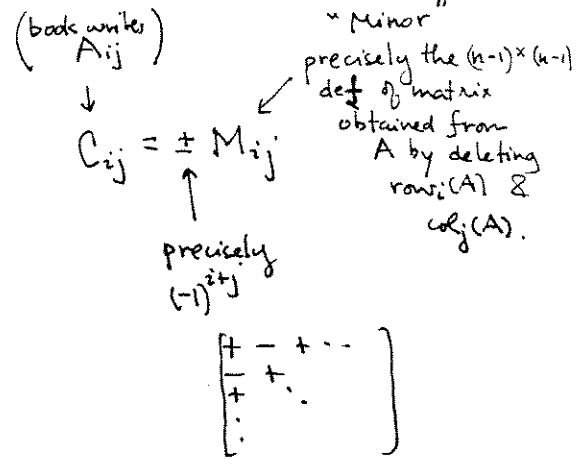 (book writes
A_{ij})
"Minor"
precisely the (n-1)×(n-1)
det of matrix
obtained from
A by deleting
row_i(A) &
col_j(A).
C_{ij} = ± M_{ij}
precisely
(-1)^{i+j}
[+ - + ...
- +
+ ⋱
⋮ ]